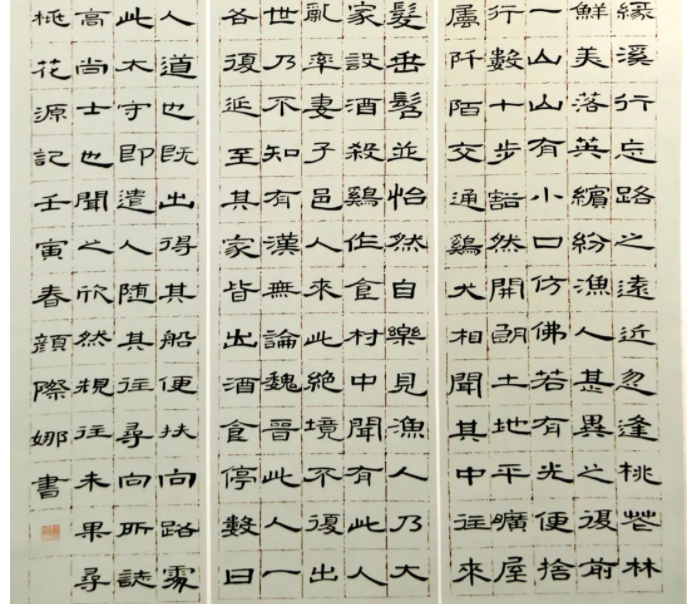 緣溪行忘路之遠近忽逢桃花林
鮮美落英繽紛漁人甚異之復前
一山山有小口仿佛若有光便捨
行數十步豁然開朗土地平曠屋
屬阡陌交通鷄犬相聞其中往來
髮垂髫並怡然自樂見漁人乃大
家設酒殺鷄作食村中聞有此人
亂率妻子邑人來此絕境不復出
世乃不知有漢無論魏晉此人一
各復延至其家皆出酒食停數日
人道也既出得其船便扶向路處
此太守即遣人随其往尋向所誌
高尚士也聞之欣然規往未果尋
桃花源記壬寅春顏際娜書